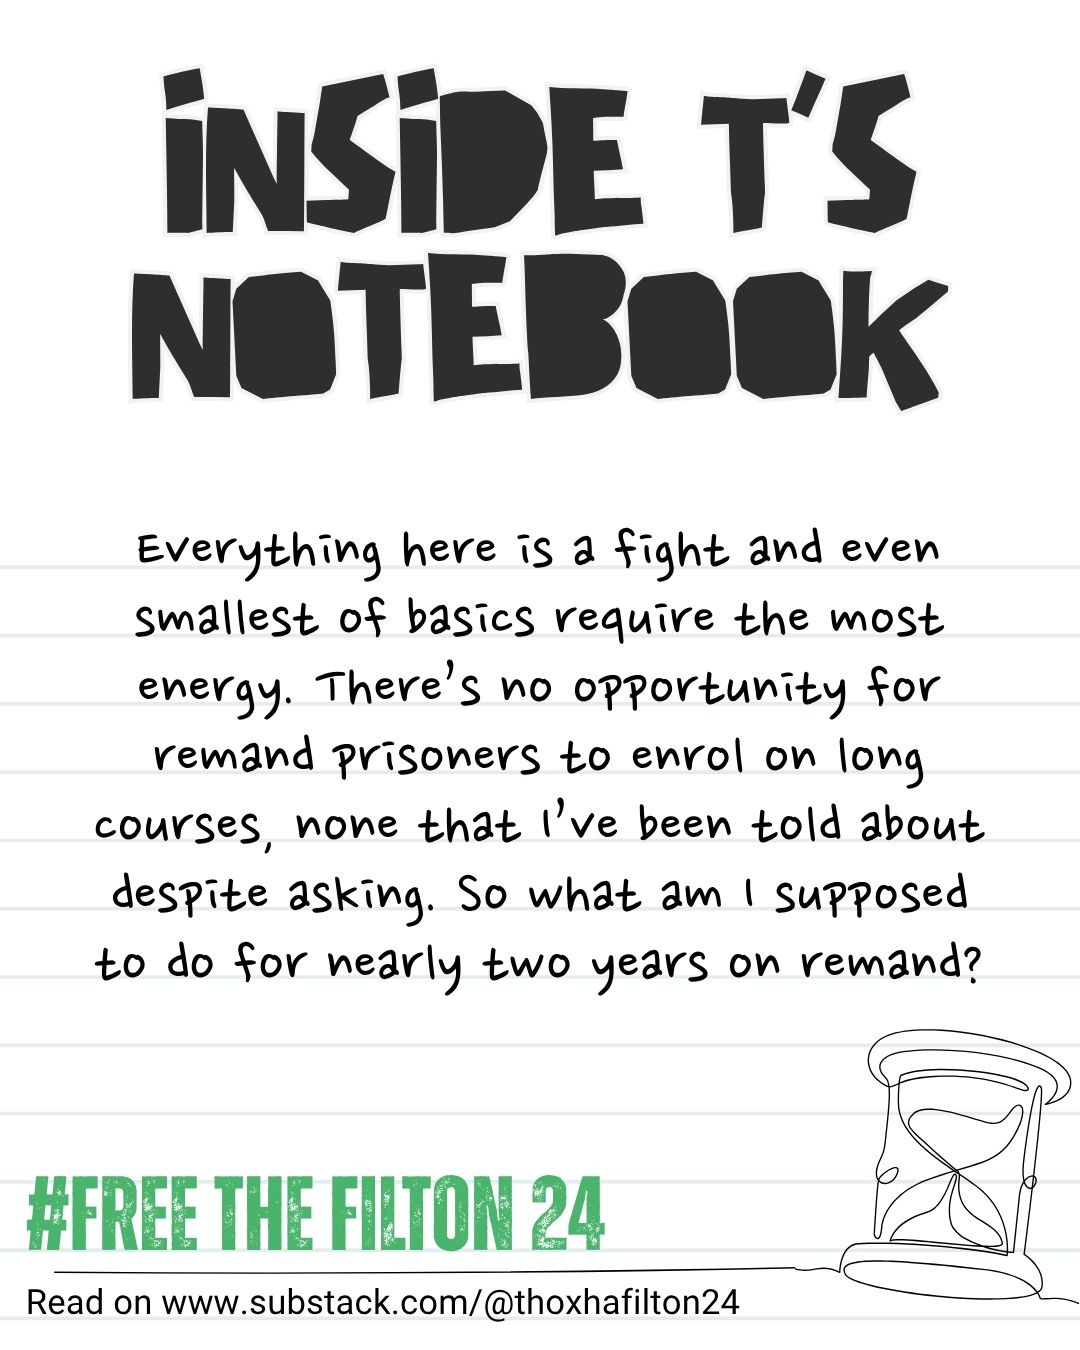 INSIDE T'S
NOTEBOOK
Everything here is a fight and even
smallest of basics require the most
energy. There's no opportunity for
remand prisoners to enrol on long
courses, none that I've been told about
despite asking. So what am I supposed
to do for nearly two years on remand?
#FREE THE FILTON 24
Read on www.substack.com/@thoxhafilton24